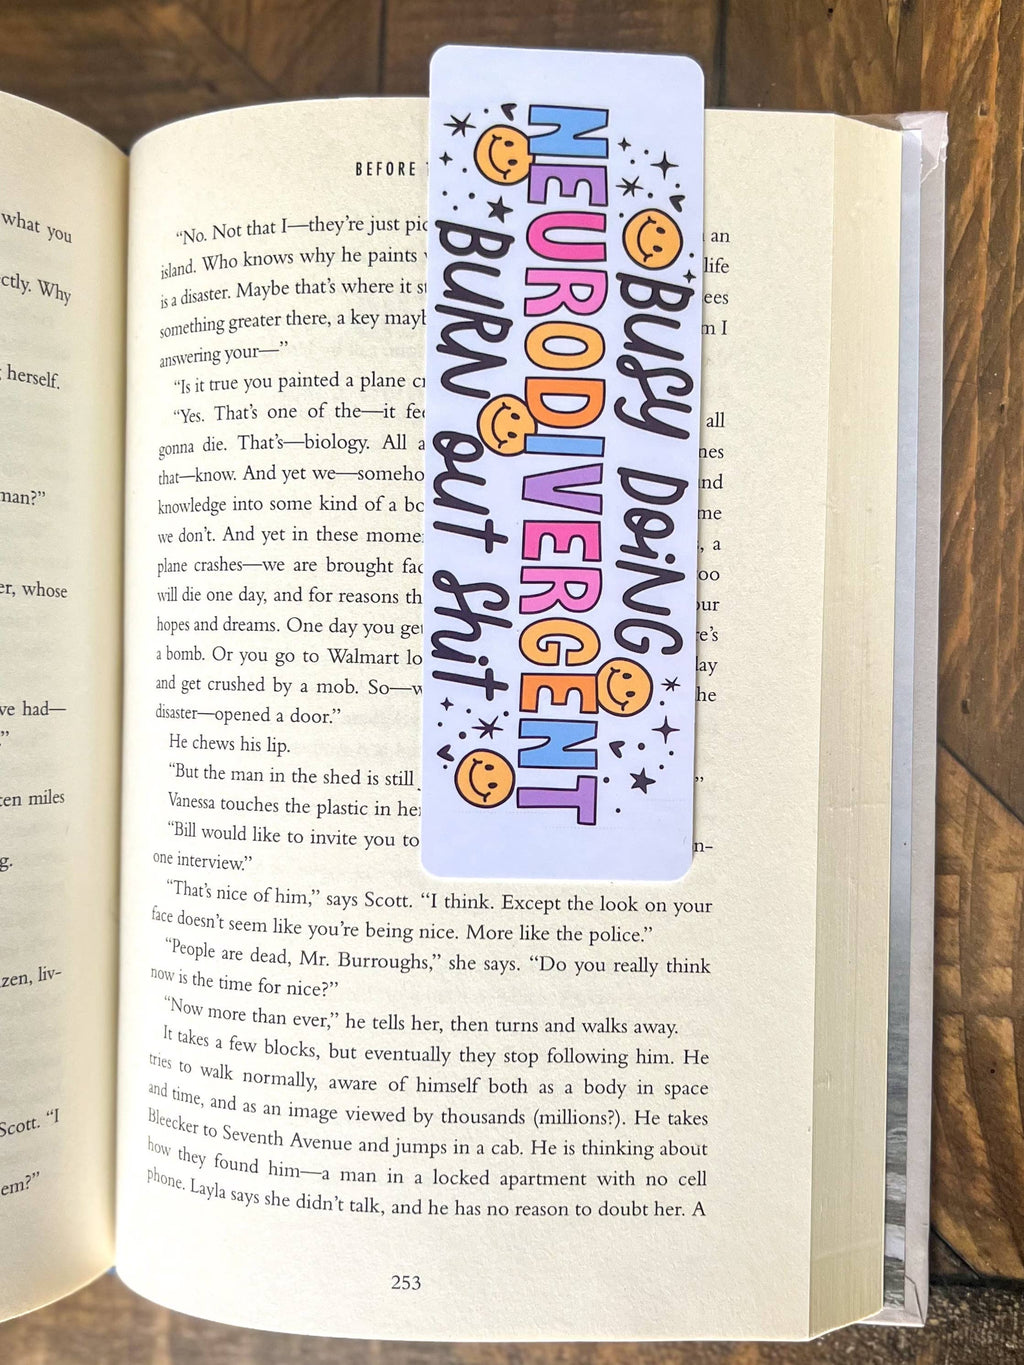 what you
ctly. Why
herself.
man?”
er, whose
ve had—
”
ten miles
g.
zen, liv-
Scott. “I
em?”
BEFORE
“No. Not that I—they’re just
an
island. Who knows why he paints
life
is a disaster. Maybe that’s where it
ees
something greater there, a key
m I
answering your—”
“Is it true you painted a plane
all
“Yes. That’s one of the—it
nes
gonna die. That’s—biology. All
nd
that—know. And yet we—
me
knowledge into some kind of a
, a
we don’t. And yet in these
oo
plane crashes—we are brought
our
will die one day, and for reasons
re’s
hopes and dreams. One day you
lay
a bomb. Or you go to Walmart
he
and get crushed by a mob. So—
disaster—opened a door.”
He chews his lip.
“But the man in the shed is still
”
Vanessa touches the plastic in
“Bill would like to invite you to
n-
one interview.”
“That’s nice of him,” says Scott. “I think. Except the look on your
face doesn’t seem like you’re being nice. More like the police.”
“People are dead, Mr. Burroughs,” she says. “Do you really think
now is the time for nice?”
“Now more than ever,” he tells her, then turns and walks away.
It takes a few blocks, but eventually they stop following him. He
tries to walk normally, aware of himself both as a body in space
and time, and as an image viewed by thousands (millions?). He takes
Bleecker to Seventh Avenue and jumps in a cab. He is thinking about
how they found him—a man in a locked apartment with no cell
phone. Layla says she didn’t talk, and he has no reason to doubt her. A
253
BUSY DOING
NEURODIVERGENT
BURN OUT SHIT